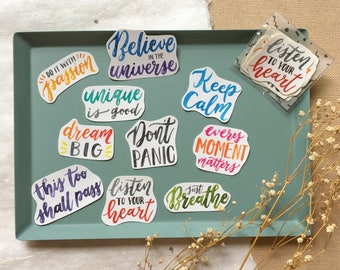 DO IT WITH
passion
Believe
IN THE
universe
Keep
Calm
listen
TO YOUR
heart
unique
is good
dream
BIG
Don't
PANIC
every
MOMENT
matters
this too
shall pass
listen
TO YOUR
heart
Just
Breathe